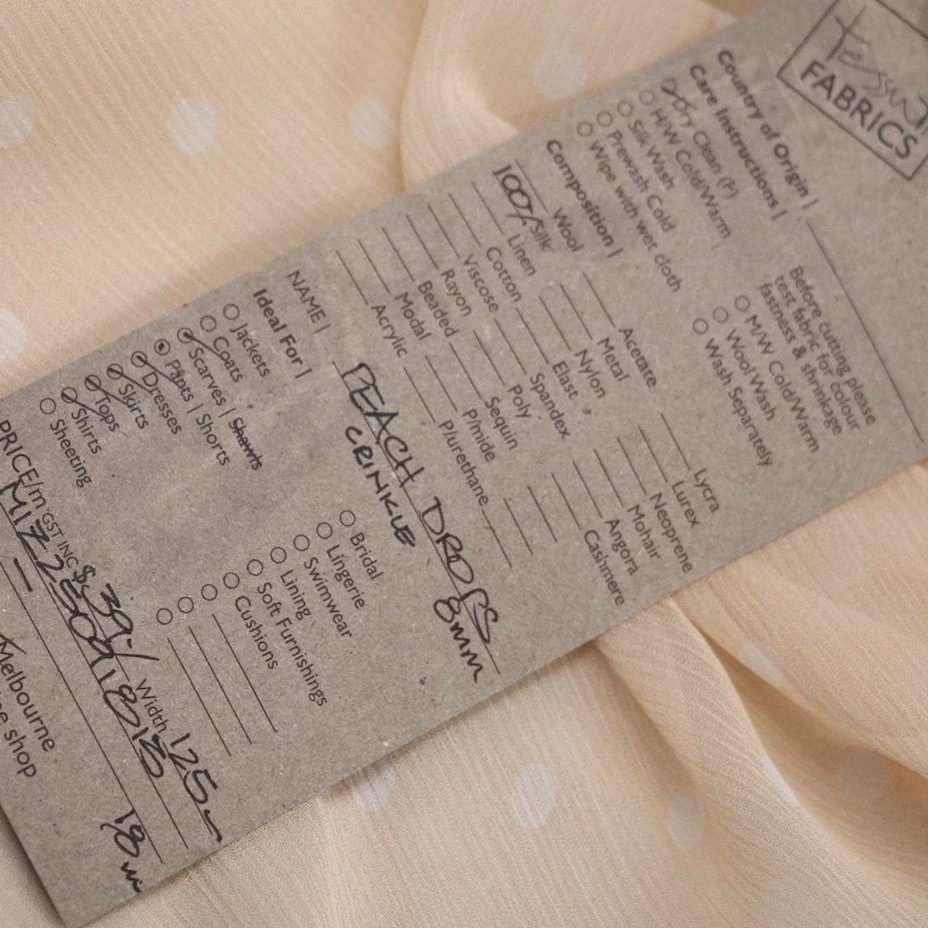 Tessuti
FABRICS
Country of Origin |
Care Instructions |
Dry Clean (P)
H/W Cold/Warm
Silk Wash
Prewash Cold
Wipe with wet cloth
Before cutting please
test fabric for colour
fastness & shrinkage
M/W Cold/Warm
Wool Wash
Wash Separately
Composition |
Wool
100% Silk
Linen
Cotton
Viscose
Rayon
Beaded
Modal
Acrylic
Acetate
Metal
Nylon
Elast
Spandex
Poly
Sequin
P/mide
P/urethane
Lycra
Lurex
Neoprene
Mohair
Angora
Cashmere
NAME | PEACH DROPS
CRINKLE 8mm
Ideal For |
Jackets
Coats
Scarves | Shawls
Pants | Shorts
Dresses
Skirts
Tops
Shirts
Sheeting
Bridal
Lingerie
Swimwear
Lining
Soft Furnishings
Cushions
PRICE/m GST INC $ 39- Width 125
18m
Melbourne
shop